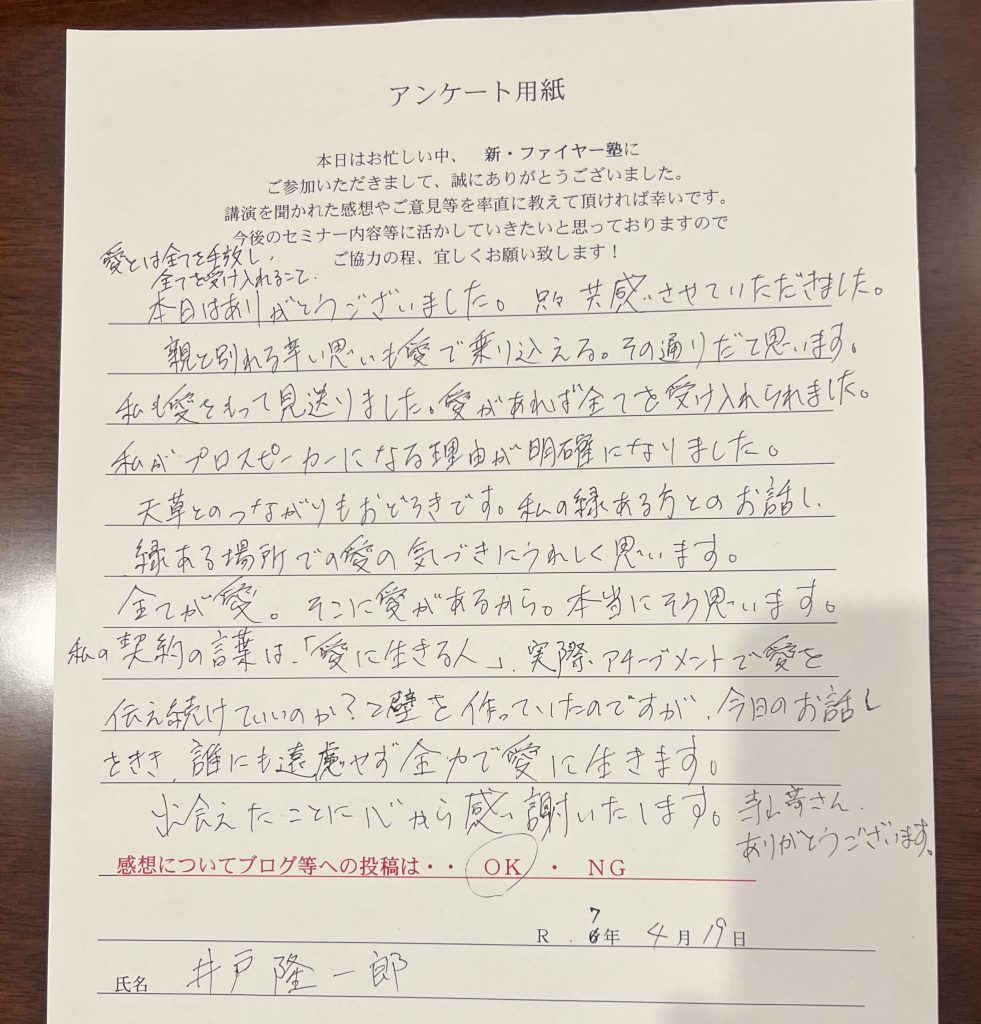 アンケート用紙
本日はお忙しい中、　新・ファイヤー塾に
ご参加いただきまして、誠にありがとうございました。
講演を聞かれた感想やご意見等を率直に教えて頂ければ幸いです。
今後のセミナー内容等に活かしていきたいと思っておりますので
ご協力の程、宜しくお願い致します！
愛とは全てを手放し、
全てを受け入れること、
本日はありがとうございました。只々共感させていただきました。
親と別れる辛い思いも愛で乗り込える。その通りだと思います。
私も愛をもって見送りました。愛があれば全てを受け入れられました。
私がプロスピーカーになる理由が明確になりました。
天草とのつながりもおどろきです。私の縁ある方とのお話し、
縁ある場所での愛の気づきにうれしく思います。
全てが愛。そこに愛があるから。本当にそう思います。
私の契約の言葉は、「愛に生きる人」、実際、アチーブメントで愛を
伝え続けていいのか？と壁を作っていたのですが、今日のお話し
をきき、誰にも遠慮せず全力で愛に生きます。
出会えたことに心から感謝いたします。
さん、
ありがとうございます。
感想についてブログ等への投稿は・・　OK　・　NG
R．7年 4月 19日
氏名　井戸隆一郎